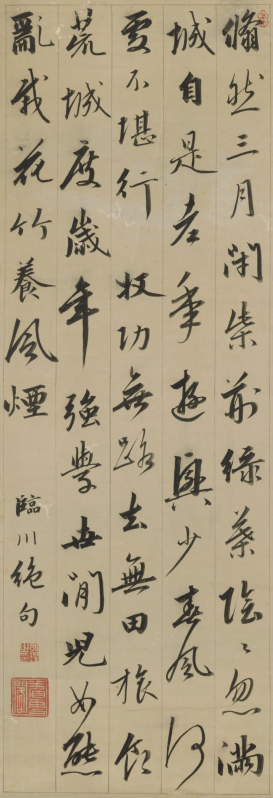 翛然三月閉柴荆綠葉陰〻忽滿
城自是老來遊興少春風何
處不堪行 收功無路去無田旅飯
荒城度歲年強學世間兒女態
亂栽花竹養風煙 臨川絕句